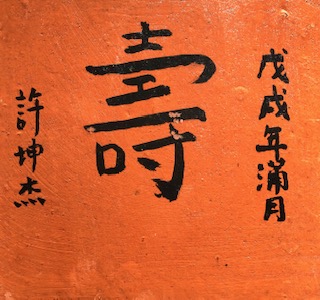 戊戌年滿月
壽
許坤杰